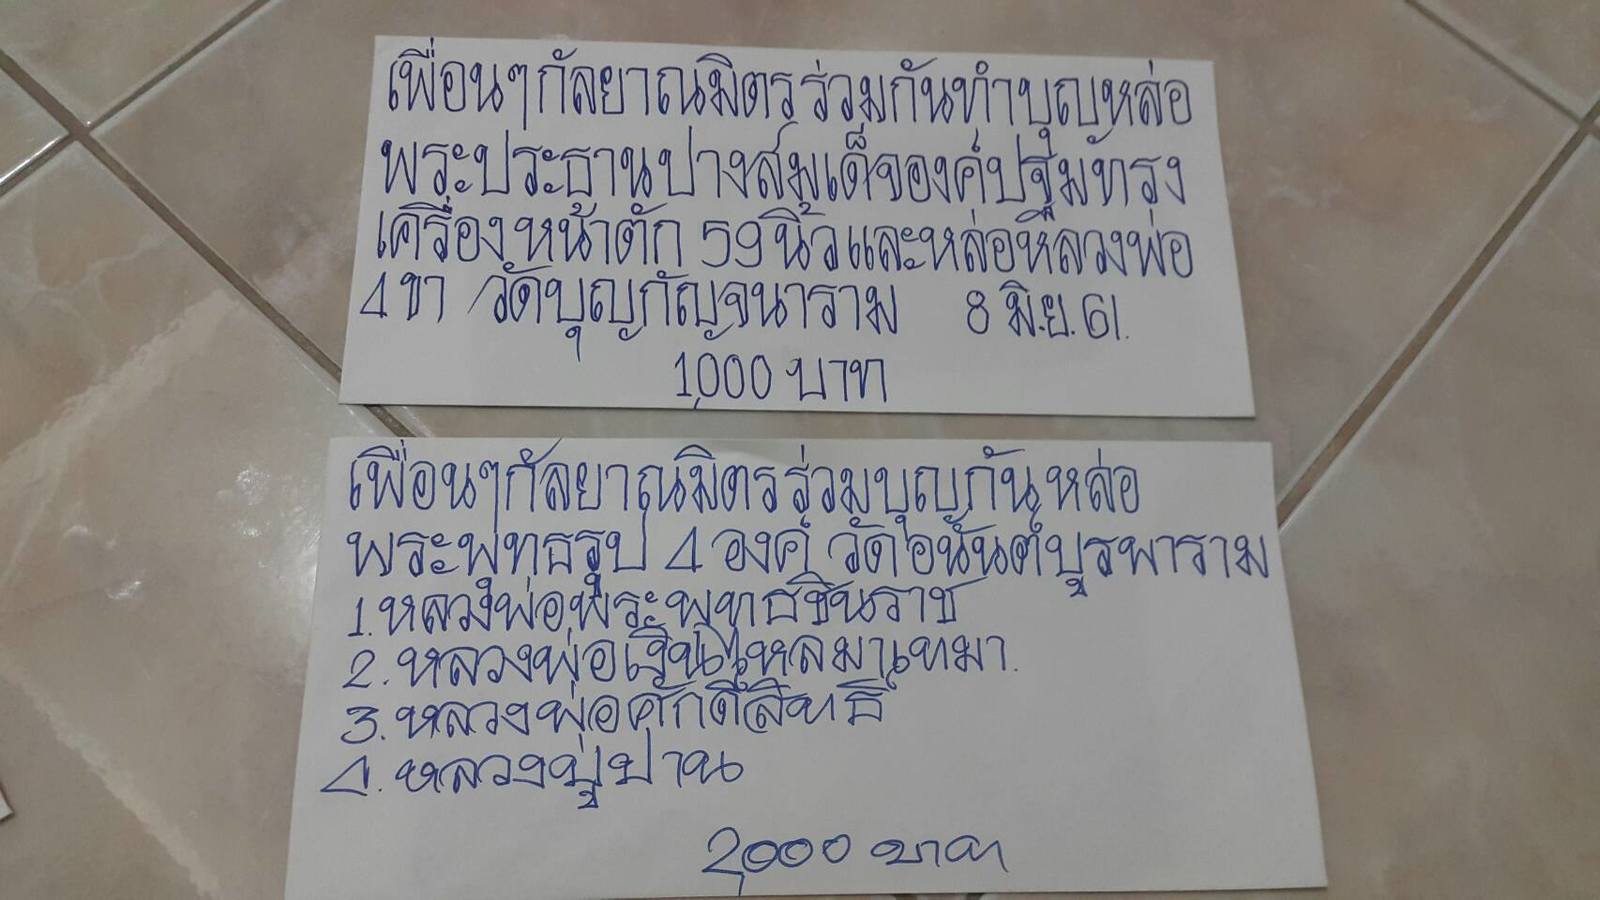 เพื่อนๆกัลยาณมิตรร่วมกันทำบุญหล่อ
พระประธานปางสมเด็จองค์ปฐมทรง
เครื่องหน้าตัก 59นิ้วและหล่อหลวงพ่อ
4ขา วัดบุญกัญจนาราม 8 มิ.ย.61.
1,000 บาท
เพื่อนๆกัลยาณมิตรร่วมบุญกันหล่อ
พระพุทธรูป 4 องค์ วัดอนันต์บูรพาราม
1.หลวงพ่อพระพุทธชินราช
2.หลวงพ่อเงินไหลมาเทมา.
3.หลวงพ่อศักดิ์สิทธิ์
4.หลวงปู่ปาน
2,000 บาท